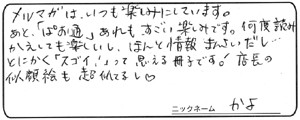 メルマガは、いつも楽しみにしています。
あと、「ばお通」あれも、すごい楽しみです。何度読み
かえしても楽しいし、ほんと情報まんさいだし…
とにかく「スゴイ!」って思える冊子です。店長の
似顔絵も超似てるし♡
ニックネーム かよ